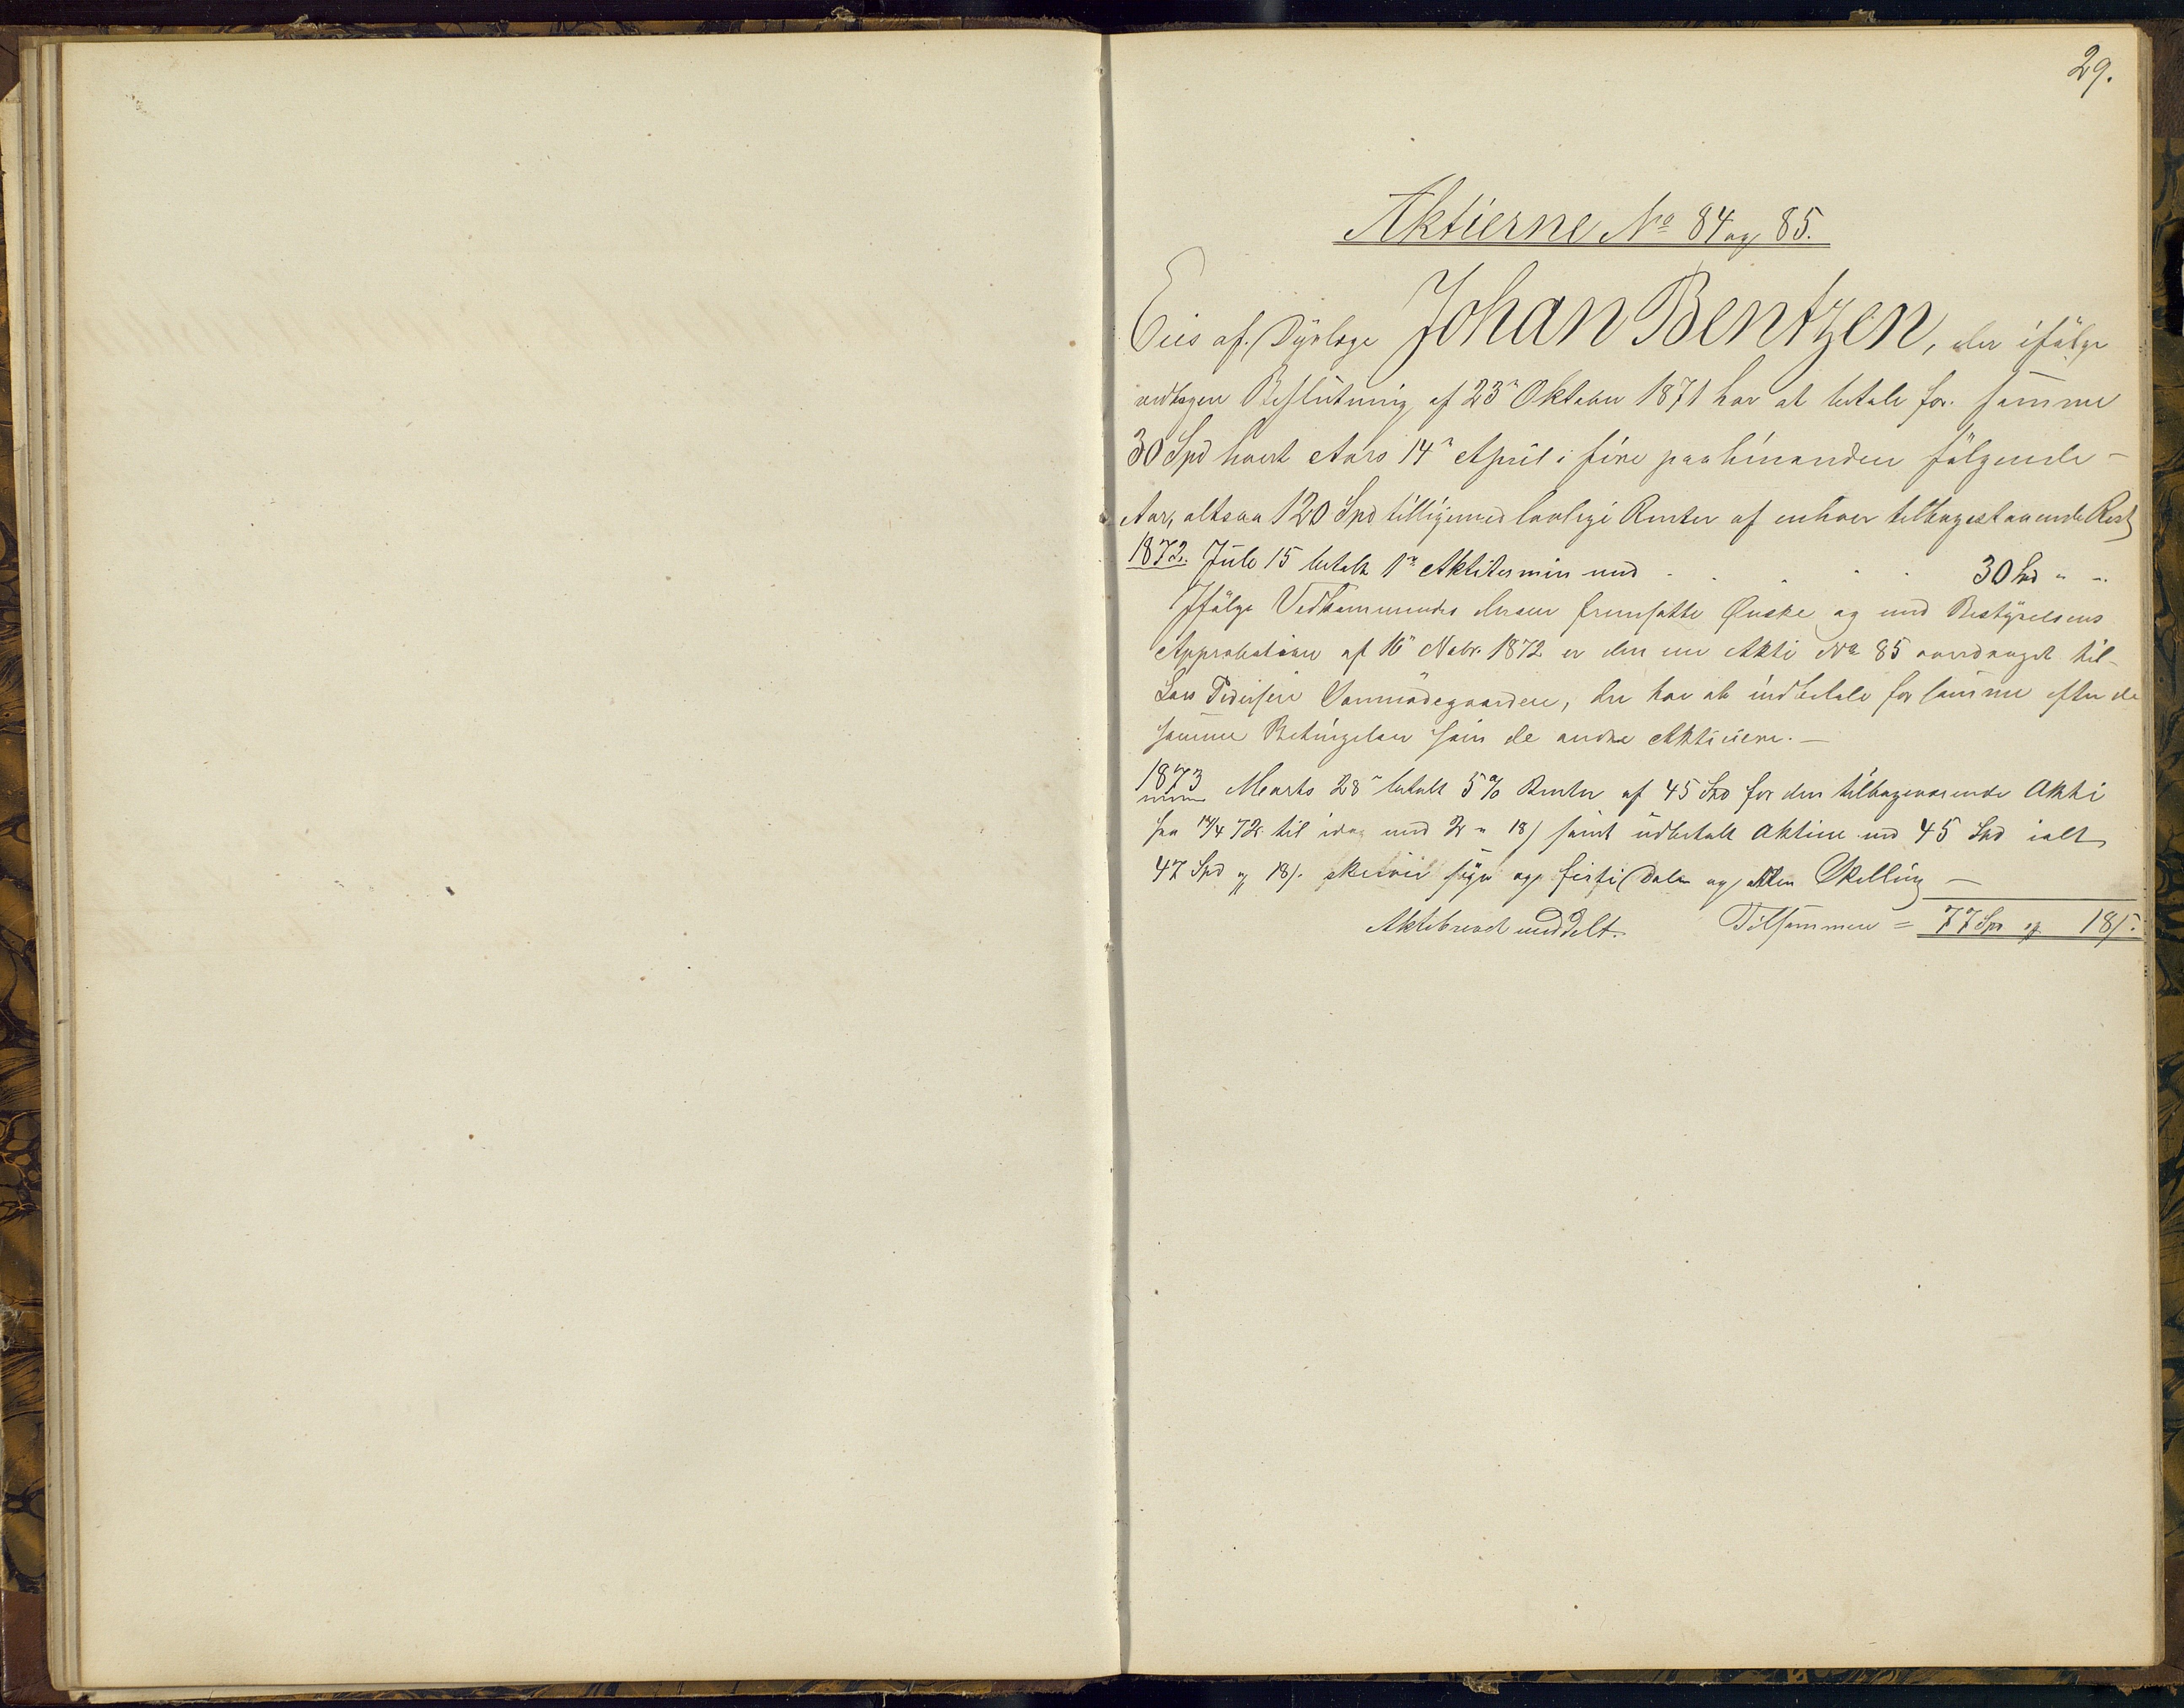 29.
Aktierne No 84 og 85.
Eies af Dyrlæge Johan Bentzen, der ifölge
vedtagen Beslutning af 23de Oktober 1871 har at betale for samme
30 Spd hvert Aars 14de April i fire paahinanden fölgende
Aar, altsaa 120 Spd tilligemed lovlige Renter af enhver tilbagestaaende Rest
1872. Juli 15 betalt 1ste Aktitermin med . . . . . 30 Spd " "
Ifölge Vedkommendes derom fremsatte Ønske og med Bestyrelsens
Approbation af 16de Novbr. 1872 er den ene Akti No 85 overdraget til
Lars Pedersen Sammödegaarden, der har at indbetale for samme efter de
samme Betingelser som de andre Aktieiere. —
1873 Marts 28de betalt 5 % Renter af 45 Spd for den tilbageværende Akti
fra 14/4 72 til idag med 2 " 18 / samt udbetalt Aktien med 45 Spd ialt
47 Spd og 18 /. skriver syv og firti Daler og atten Skilling —
Aktibrevet meddelt. Tilsammen = 77 Spd og 18 /.